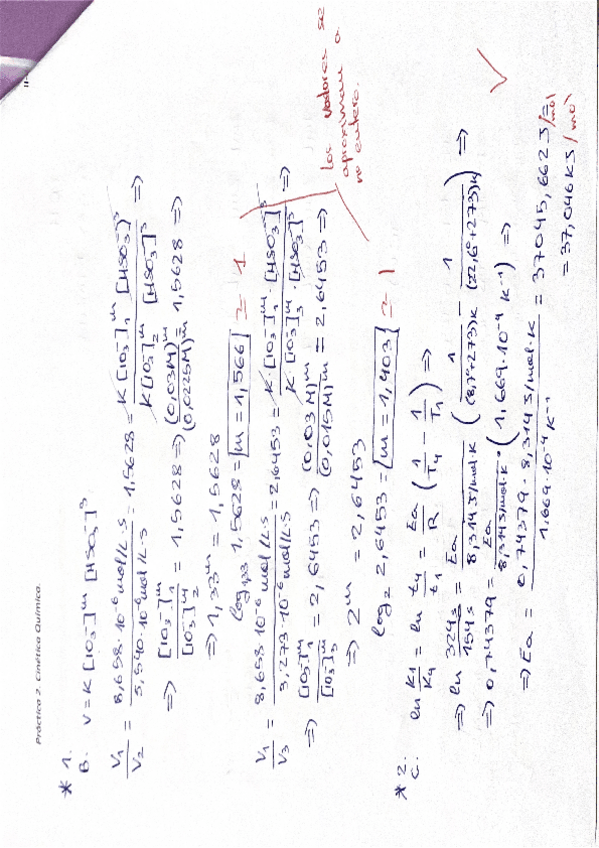 Práctica 2. Cinética Química.
* 1.
B. V = K [IO3-]^m [HSO3-]^3
V1/V2 = 8,658·10^-6 mol/L·S / 5,540·10^-6 mol/L·S = 1,5628 = K [IO3-]1^m [HSO3-]^3 / K [IO3-]2^m [HSO3-]^3 =>
=> [IO3-]1^m / [IO3-]2^m = 1,5628 => (0,03M)^m / (0,0225M)^m = 1,5628 =>
=> 1,33^m = 1,5628
log1,33 1,5628 = m = 1,566 ≃ 1
V1/V3 = 8,658·10^-6 mol/L·S / 3,273·10^-6 mol/L·S = 2,6453 = K·[IO3-]1^m · [HSO3-]^3 / K·[IO3-]3^m · [HSO3-]^3 =>
=> [IO3-]1^m / [IO3-]3^m = 2,6453 => (0,03M)^m / (0,015M)^m = 2,6453 =>
=> 2^m = 2,6453
log2 2,6453 = m = 1,403 ≃ 1
Los valores se
aproximan a
no entero.
* 2.
C. ln K1/K4 = ln t4/t1 = Ea/R (1/T4 - 1/T1) =>
=> ln 324s/154s = Ea / 8,314 J/mol·K (1/(8,7+273)K - 1/(22,6+273)K) =>
=> 0,74379 = Ea / 8,314 J/mol·K · (1,669·10^-4 K^-1) =>
=> Ea = 0,74379 · 8,314 J/mol·K / 1,669·10^-4 K^-1 = 37045,662 J/mol =
= 37,046 KJ/mol